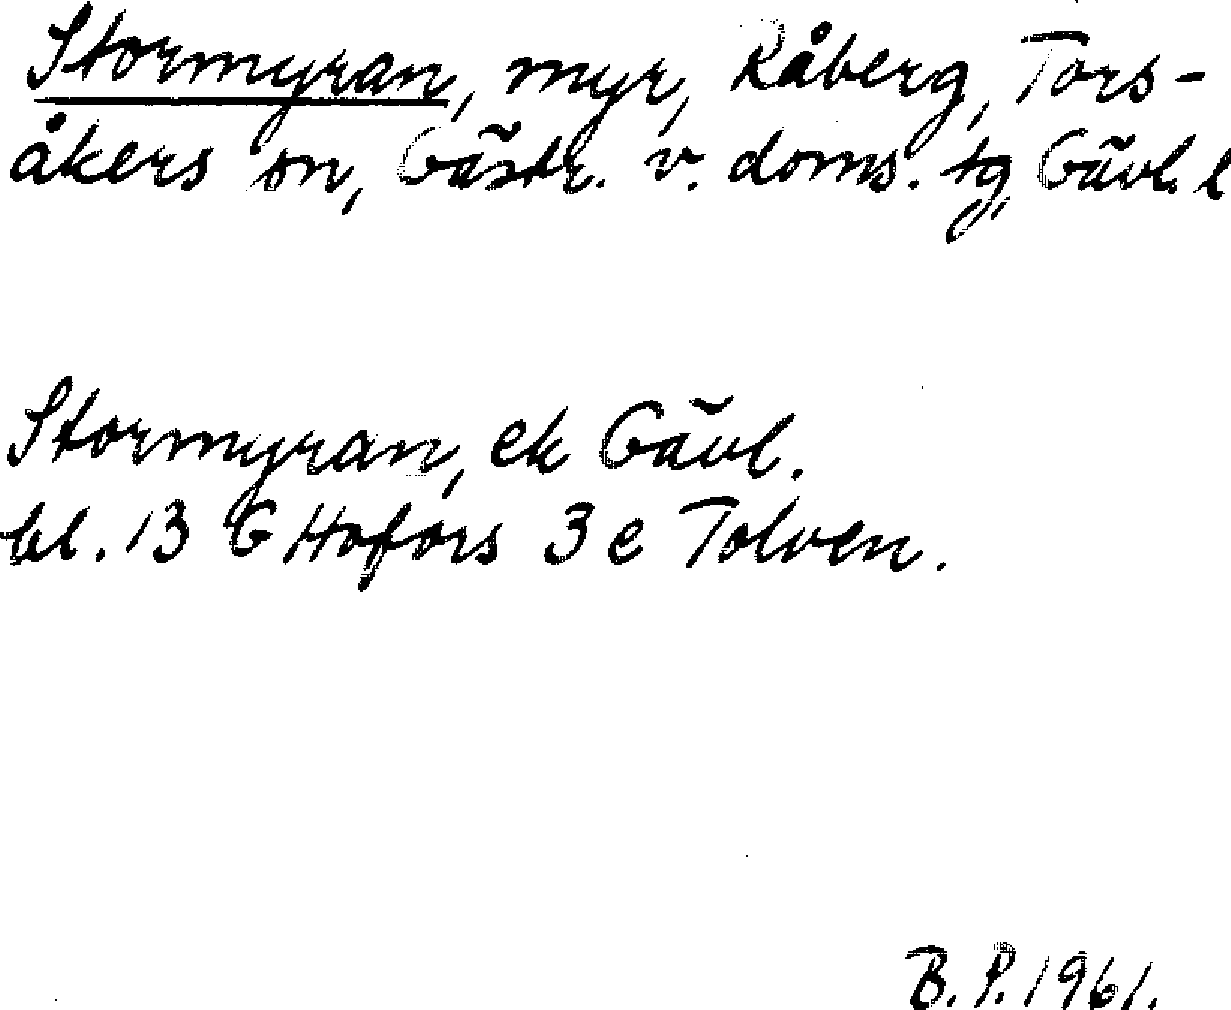 Stormyran, myr, Råberg, Tors-
åkers sn, Gästr. v. doms. tg, Gävl. l
Stormyran, ek Gävl.
bl. 13 G Hofors 3 e Tolven.
B. P. 1961.